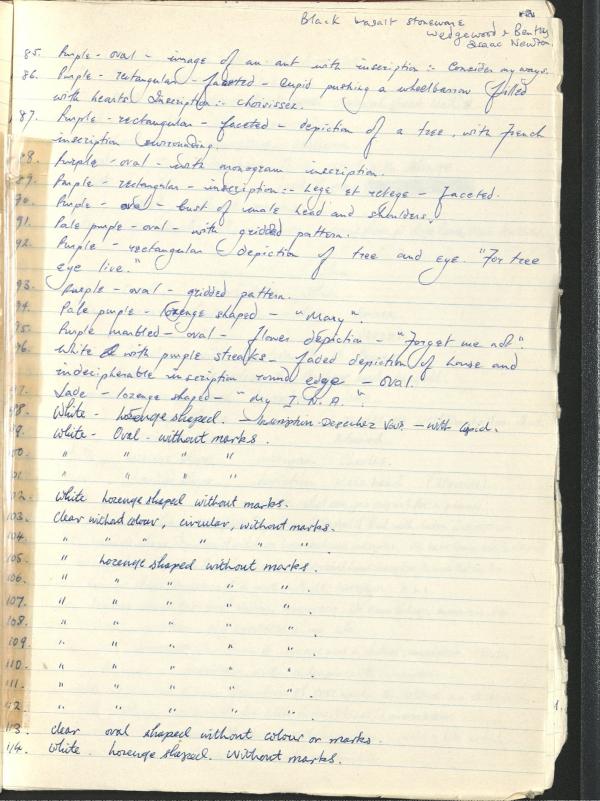 Black basalt stoneware
Wedgewood & Bentley
Isaac Newton
85. Purple - oval - image of an ant with inscription :- Consider my ways.
86. Purple - rectangular - faceted - cupid pushing a wheelbarrow filled
with hearts. Inscription :- choisissez.
87. Purple - rectangular - faceted - depiction of a tree, with French
inscription surrounding.
88. Purple - oval - with monogram inscription.
89. Purple - rectangular - inscription :- Lege et relege - faceted.
90. Purple - oval - bust of male head and shoulders.
91. Pale purple - oval - with gridded pattern.
92. Purple - rectangular depiction of tree and eye. "For tree
eye live."
93. Purple - oval - gridded pattern.
94. Pale purple - lozenge shaped - "Mary".
95. Purple marbled - oval - flower depiction - "Forget me not".
96. White with purple streaks - faded depiction of house and
indecipherable inscription round edge - oval.
97. Jade - lozenge shaped - "My I. N. A.".
98. White - lozenge shaped. - Inscription - Depechez Vous - with cupid.
99. White - Oval - without marks.
100. " " " "
101. " " " "
102. White lozenge shaped without marks.
103. clear without colour, circular, without marks.
104. " " " " " "
105. " lozenge shaped without marks.
106. " " " " " .
107. " " " " " .
108. " " " " " .
109. " " " " " .
110. " " " " " .
111. " " " " " .
112. " " " " " .
113. clear oval shaped without colour or marks.
114. White. lozenge shaped. Without marks.